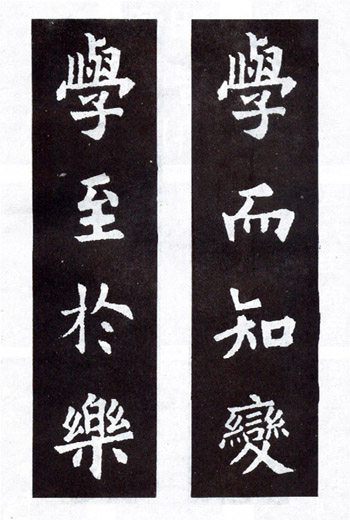 學而知變
學至於樂